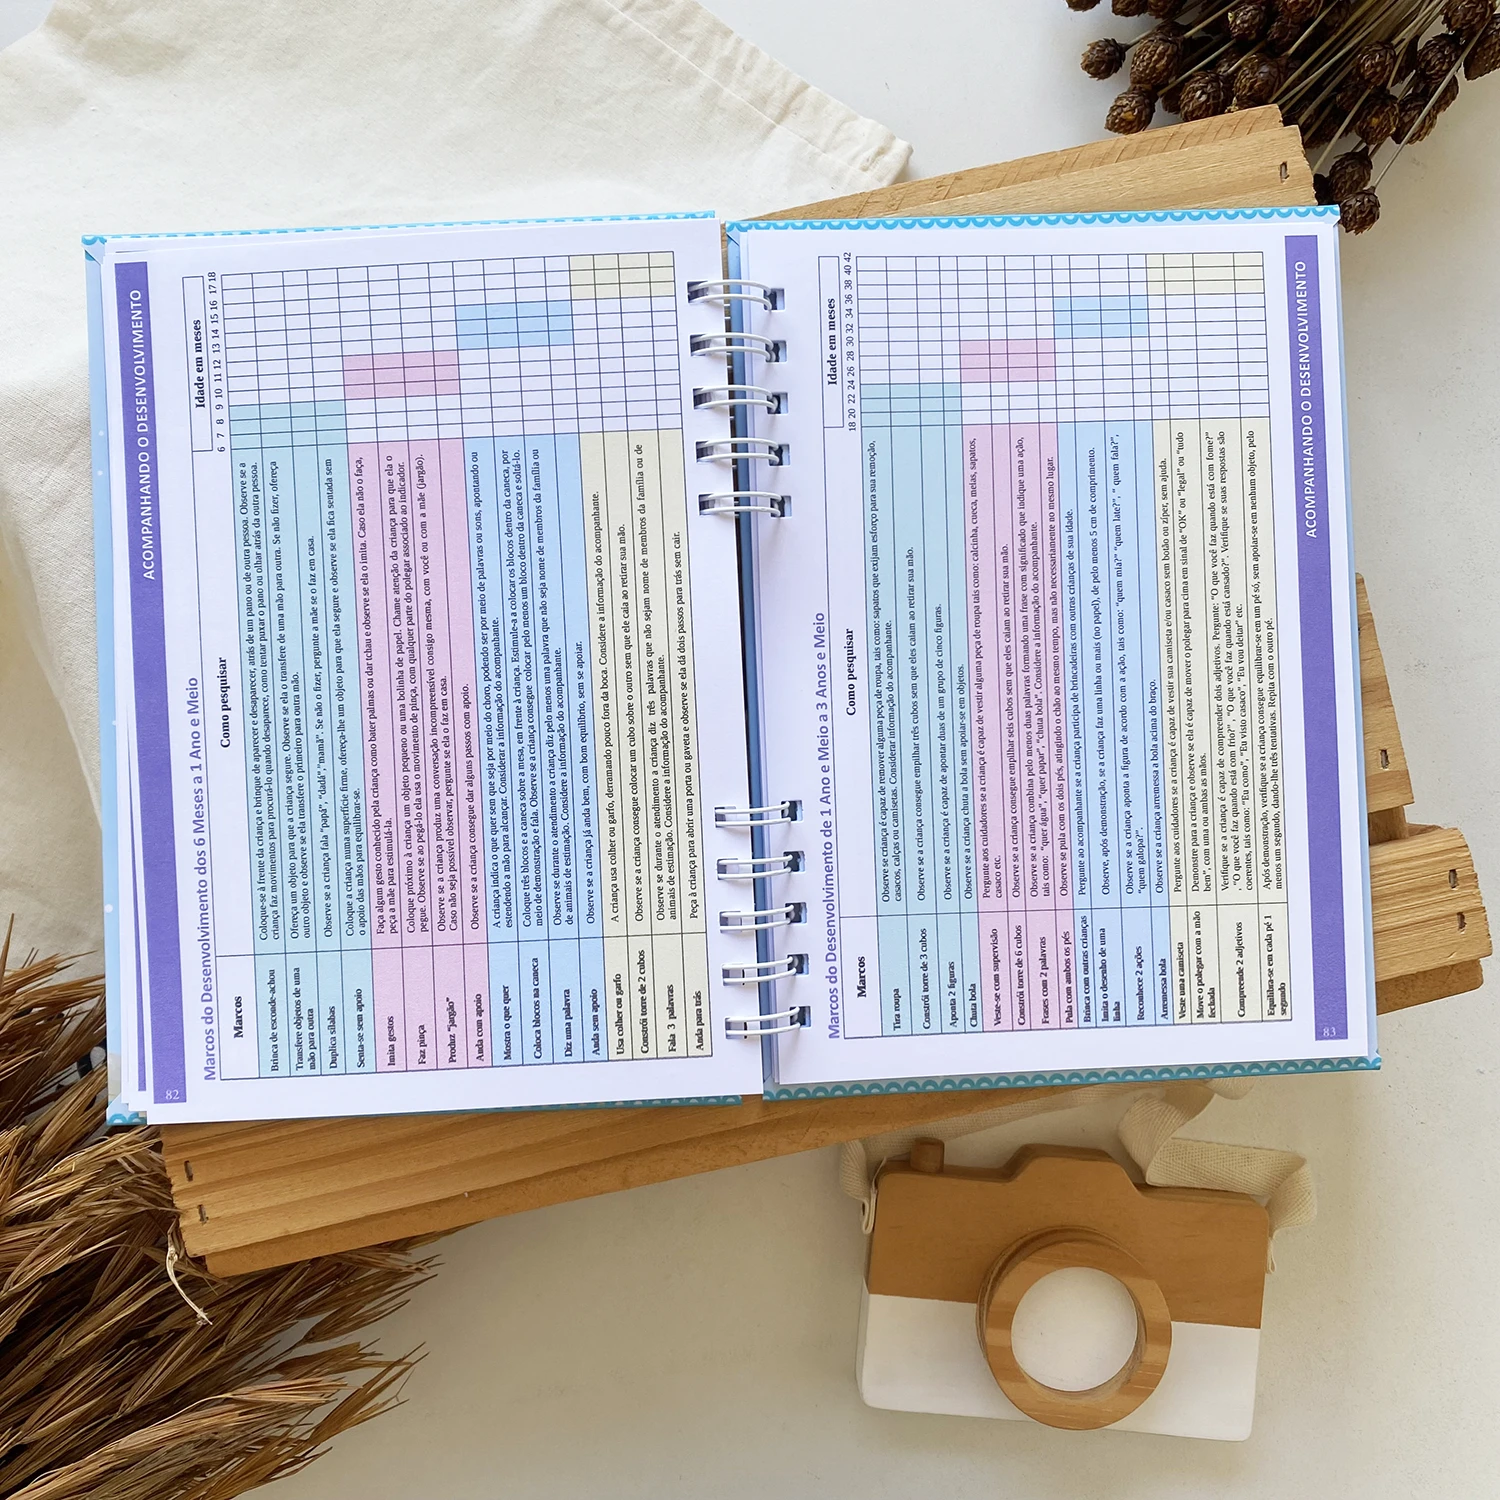 ACOMPANHANDO O DESENVOLVIMENTO
Marcos do Desenvolvimento dos 6 Meses a 1 Ano e Meio
Idade em meses
Marcos
Como pesquisar
6 7 8 9 10 11 12 13 14 15 16 17 18
Brinca de esconde-achou
Coloque-se à frente da criança e brinque de aparecer e desaparecer, atrás de um pano ou de outra pessoa. Observe se a
criança faz movimentos para procurá-lo quando desaparece, como tentar puxar o pano ou olhar atrás da outra pessoa.
Transfere objetos de uma
mão para outra
Ofereça um objeto para que a criança segure. Observe se ela o transfere de uma mão para outra. Se não fizer, ofereça
outro objeto e observe se ela transfere o primeiro para outra mão.
Duplica sílabas
Observe se a criança fala "papá", "dadá", "mamã". Se não o fizer, pergunte a mãe se o faz em casa.
Senta-se sem apoio
Coloque a criança numa superfície firme, ofereça-lhe um objeto para que ela segure e observe se ela fica sentada sem
o apoio das mãos para equilibrar-se.
Imita gestos
Faça algum gesto conhecido pela criança como bater palmas ou dar tchau e observe se ela o imita. Caso ela não o faça,
peça a mãe para estimulá-la.
Faz pinça
Coloque próximo à criança um objeto pequeno ou uma bolinha de papel. Chame atenção da criança para que ela o
pegue. Observe se ao pegá-lo ela usa o movimento de pinça, com qualquer parte do polegar associado ao indicador.
Produz "jargão"
Observe se a criança produz uma conversação incompreensível consigo mesma, com você ou com a mãe (jargão).
Caso não seja possível observar, pergunte se ela o faz em casa.
Anda com apoio
Observe se a criança consegue dar alguns passos com apoio.
Mostra o que quer
A criança indica o que quer sem que seja por meio do choro, podendo ser por meio de palavras ou sons, apontando ou
estendendo a mão para alcançar. Considerar a informação do acompanhante.
Coloca blocos na caneca
Coloque três blocos e a caneca sobre a mesa, em frente à criança. Estimule-a a colocar os blocos dentro da caneca, por
meio de demonstração e fala. Observe se a criança consegue colocar pelo menos um bloco dentro da caneca e soltá-lo.
Diz uma palavra
Observe se durante o atendimento a criança diz pelo menos uma palavra que não seja nome de membros da família ou
de animais de estimação. Considere a informação do acompanhante.
Anda sem apoio
Observe se a criança já anda bem, com bom equilíbrio, sem se apoiar.
Usa colher ou garfo
A criança usa colher ou garfo, derramando pouco fora da boca. Considere a informação do acompanhante.
Constrói torre de 2 cubos
Observe se a criança consegue colocar um cubo sobre o outro sem que ele caia ao retirar sua mão.
Fala 3 palavras
Observe se durante o atendimento a criança diz três palavras que não sejam nome de membros da família ou de
animais de estimação. Considere a informação do acompanhante.
Anda para trás
Peça à criança para abrir uma porta ou gaveta e observe se ela dá dois passos para trás sem cair.
82
Marcos do Desenvolvimento de 1 Ano e Meio a 3 Anos e Meio
Idade em meses
Marcos
Como pesquisar
18 20 22 24 26 28 30 32 34 36 38 40 42
Tira roupa
Observe se criança é capaz de remover alguma peça de roupa, tais como: sapatos que exijam esforço para sua remoção,
casacos, calças ou camisetas. Considerar informação do acompanhante.
Constrói torre de 3 cubos
Observe se a criança consegue empilhar três cubos sem que eles caiam ao retirar sua mão.
Aponta 2 figuras
Observe se a criança é capaz de apontar duas de um grupo de cinco figuras.
Chuta bola
Observe se a criança chuta a bola sem apoiar-se em objetos.
Veste-se com supervisão
Pergunte aos cuidadores se a criança é capaz de vestir alguma peça de roupa tais como: calcinha, cueca, meias, sapatos,
casaco etc.
Constrói torre de 6 cubos
Observe se a criança consegue empilhar seis cubos sem que eles caiam ao retirar sua mão.
Frases com 2 palavras
Observe se a criança combina pelo menos duas palavras formando uma frase com significado que indique uma ação,
tais como: "quer água", "quer papar", "chuta bola". Considere a informação do acompanhante.
Pula com ambos os pés
Observe se pula com os dois pés, atingindo o chão ao mesmo tempo, mas não necessariamente no mesmo lugar.
Brinca com outras crianças
Pergunte ao acompanhante se a criança participa de brincadeiras com outras crianças de sua idade.
Imita o desenho de uma
linha
Observe, após demonstração, se a criança faz uma linha ou mais (no papel), de pelo menos 5 cm de comprimento.
Reconhece 2 ações
Observe se a criança aponta a figura de acordo com a ação, tais como: "quem mia?" "quem late?", " quem fala?",
"quem galopa?".
Arremessa bola
Observe se a criança arremessa a bola acima do braço.
Veste uma camiseta
Pergunte aos cuidadores se a criança é capaz de vestir sua camiseta e/ou casaco sem botão ou zíper, sem ajuda.
Move o polegar com a mão
fechada
Demonstre para a criança e observe se ela é capaz de mover o polegar para cima em sinal de "OK" ou "legal" ou "tudo
bem", com uma ou ambas as mãos.
Compreende 2 adjetivos
Verifique se a criança é capaz de compreender dois adjetivos. Pergunte: "O que você faz quando está com fome?"
, "O que você faz quando está com frio?", "O que você faz quando está cansado?". Verifique se suas respostas são
coerentes, tais como: "Eu como", "Eu visto casaco", "Eu vou deitar" etc.
Equilibra-se em cada pé 1
segundo
Após demonstração, verifique se a criança consegue equilibrar-se em um pé só, sem apoiar-se em nenhum objeto, pelo
menos um segundo, dando-lhe três tentativas. Repita com o outro pé.
ACOMPANHANDO O DESENVOLVIMENTO
83